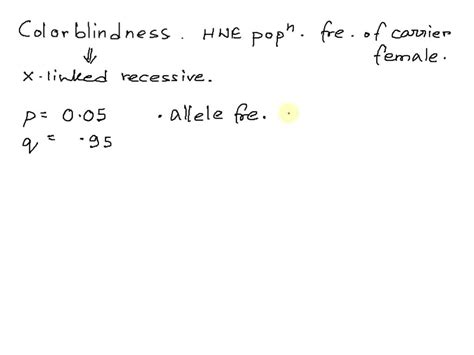 Colorblindness. HWE popⁿ. fre. of carrier
female.
⇓
x-linked recessive.
p = 0.05 . allele fre.
q = .95